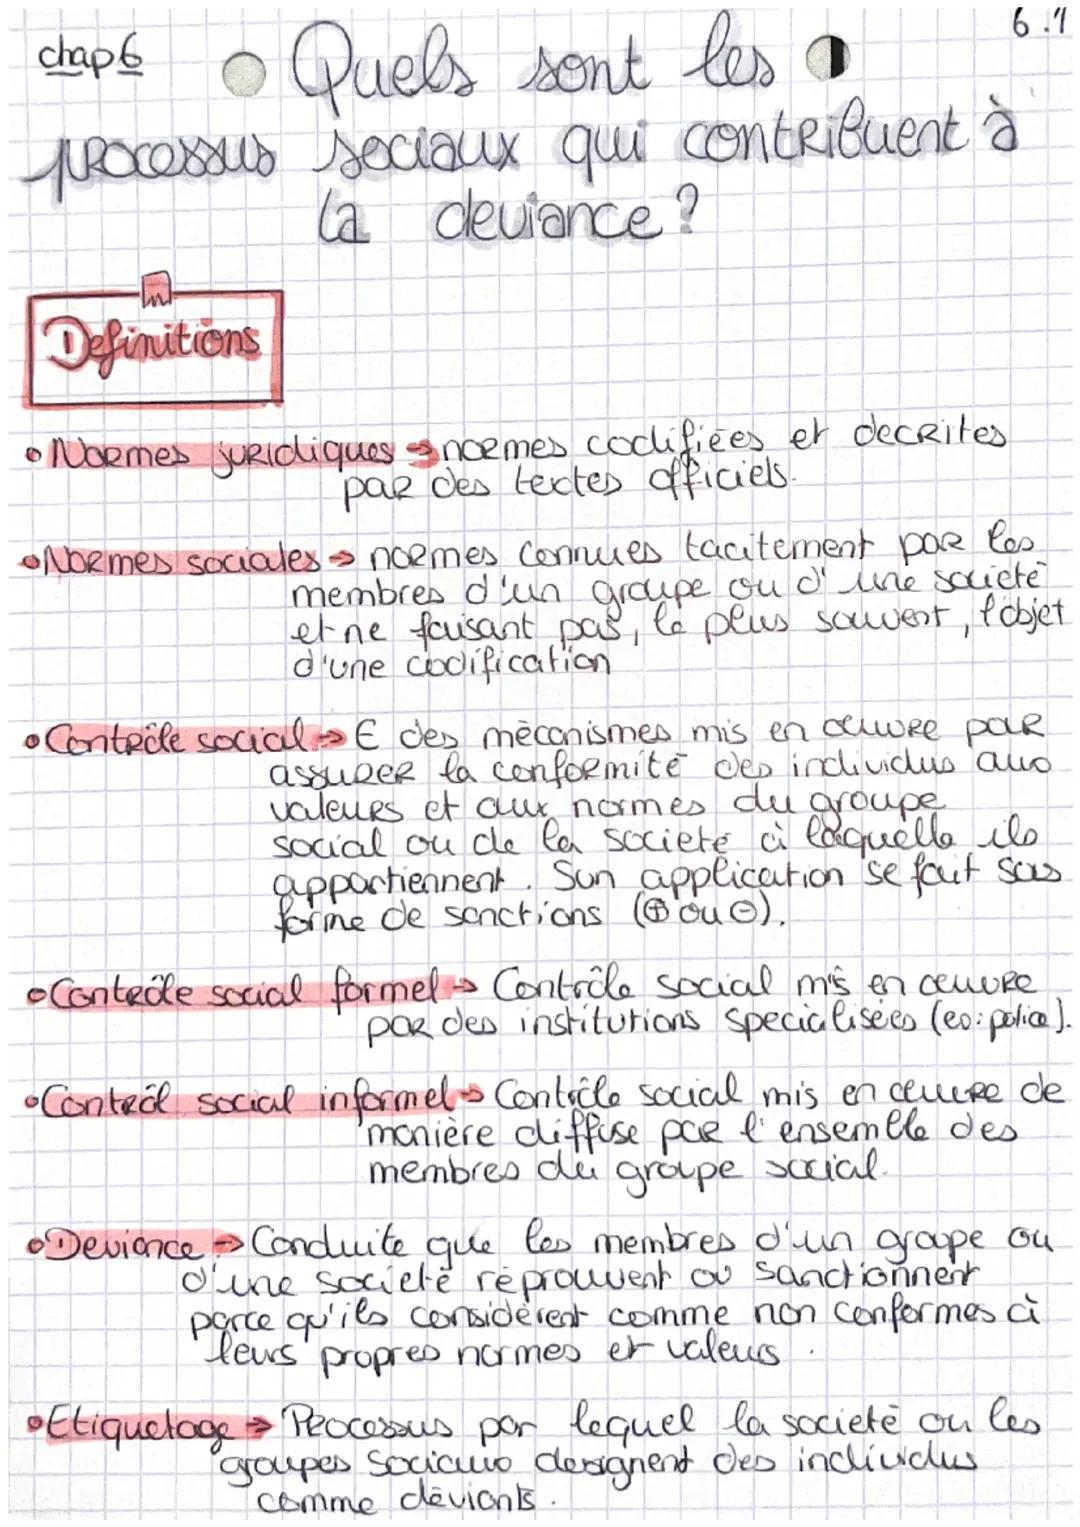 6.1
chap 6
Quels sont les
processus sociaux qui contribuent à
la deviance ?
Definitions
Normes juridiques → normes codifiées et decrites
par des textes officiels.
Normes sociales → normes connues tacitement par les
membres d'un groupe ou d'une societé
et ne faisant pas, le plus souvent, l'objet
d'une codification
Contrôle social → E des mécanismes mis en œuvre pour
assurer la conformité des individus aux
valeurs et aux normes du groupe
social ou de la societé à laquelle ils
appartiennent. Son application se fait sous
forme de sanctions (⊕ ou ⊖).
Contrôle social formel → Contrôle social mis en œuvre
par des institutions specialisées (ex: police).
Contrôl social informel → Contrôle social mis en œuvre de
manière diffuse par l'ensemble des
membres du groupe social.
Deviance → Conduite que les membres d'un groupe ou
d'une societé réprouvent ou sanctionnent
parce qu'ils considèrent comme non conformes à
leurs propres normes et valeurs.
Etiquetage → Processus par lequel la societé ou les
groupes sociaux designent des individus
comme déviants.